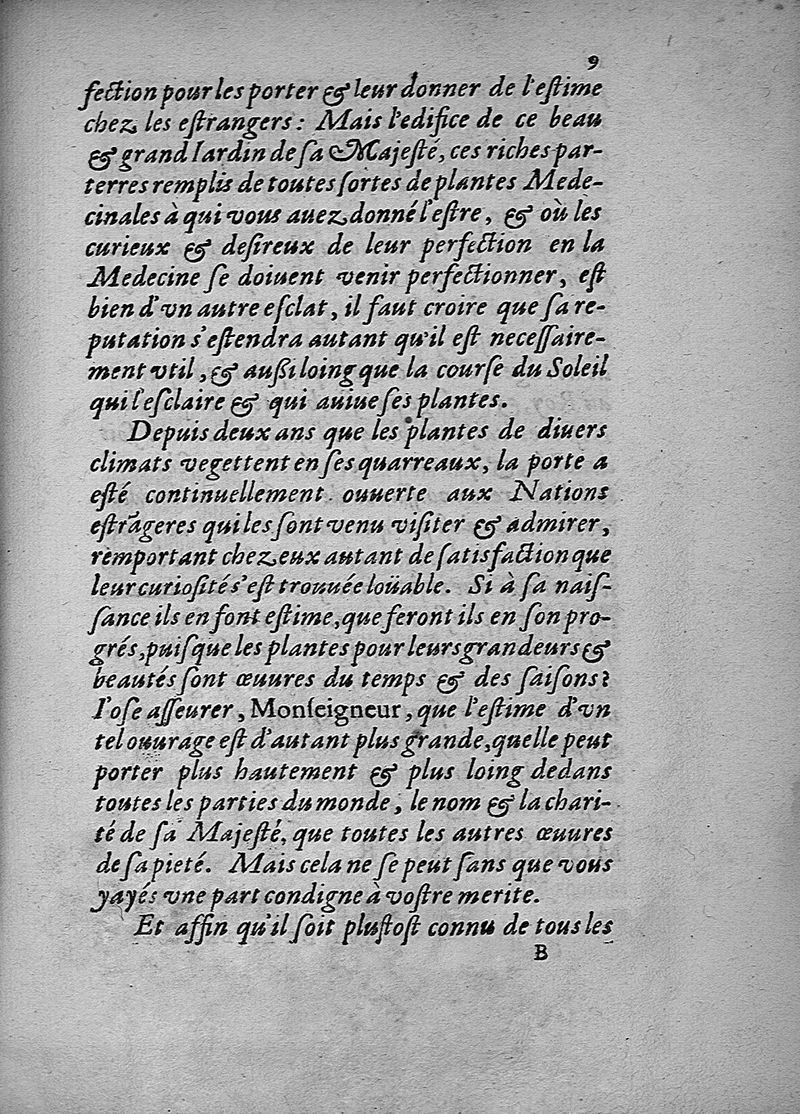 9
fection pour les porter & leur donner de l'eſtime
chez les eſtrangers : Mais l'edifice de ce beau
& grand Iardin de ſa Majeſté, ces riches par-
terres remplis de toutes ſortes de plantes Mede-
cinales à qui vous auez donné l'eſtre, & où les
curieux & deſireux de leur perfection en la
Medecine ſe doiuent venir perfectionner, eſt
bien d'vn autre eſclat, il faut croire que ſa re-
putation s'eſtendra autant qu'il eſt neceſſaire-
ment vtil, & außi loing que la courſe du Soleil
qui l'eſclaire & qui auiue ſes plantes.
Depuis deux ans que les plantes de diuers
climats vegettent en ſes quarreaux, la porte a
eſté continuellement ouuerte aux Nations
eſtrãgeres qui les ſont venu viſiter & admirer,
remportant chez eux autant de ſatisfaction que
leur curioſité s'eſt trouuée loüable. Si à ſa naiſ-
ſance ils en font eſtime, que feront ils en ſon pro-
grés, puiſque les plantes pour leurs grandeurs &
beautés ſont œuures du temps & des ſaiſons?
I'oſe aſſeurer, Monſeigneur, que l'eſtime d'vn
tel ouurage eſt d'autant plus grande, quelle peut
porter plus hautement & plus loing dedans
toutes les parties du monde, le nom & la chari-
té de ſa Majeſté, que toutes les autres œuures
de ſa pieté. Mais cela ne ſe peut ſans que vous
yayés vne part condigne à voſtre merite.
Et affin qu'il ſoit pluſtoſt connu de tous les
B